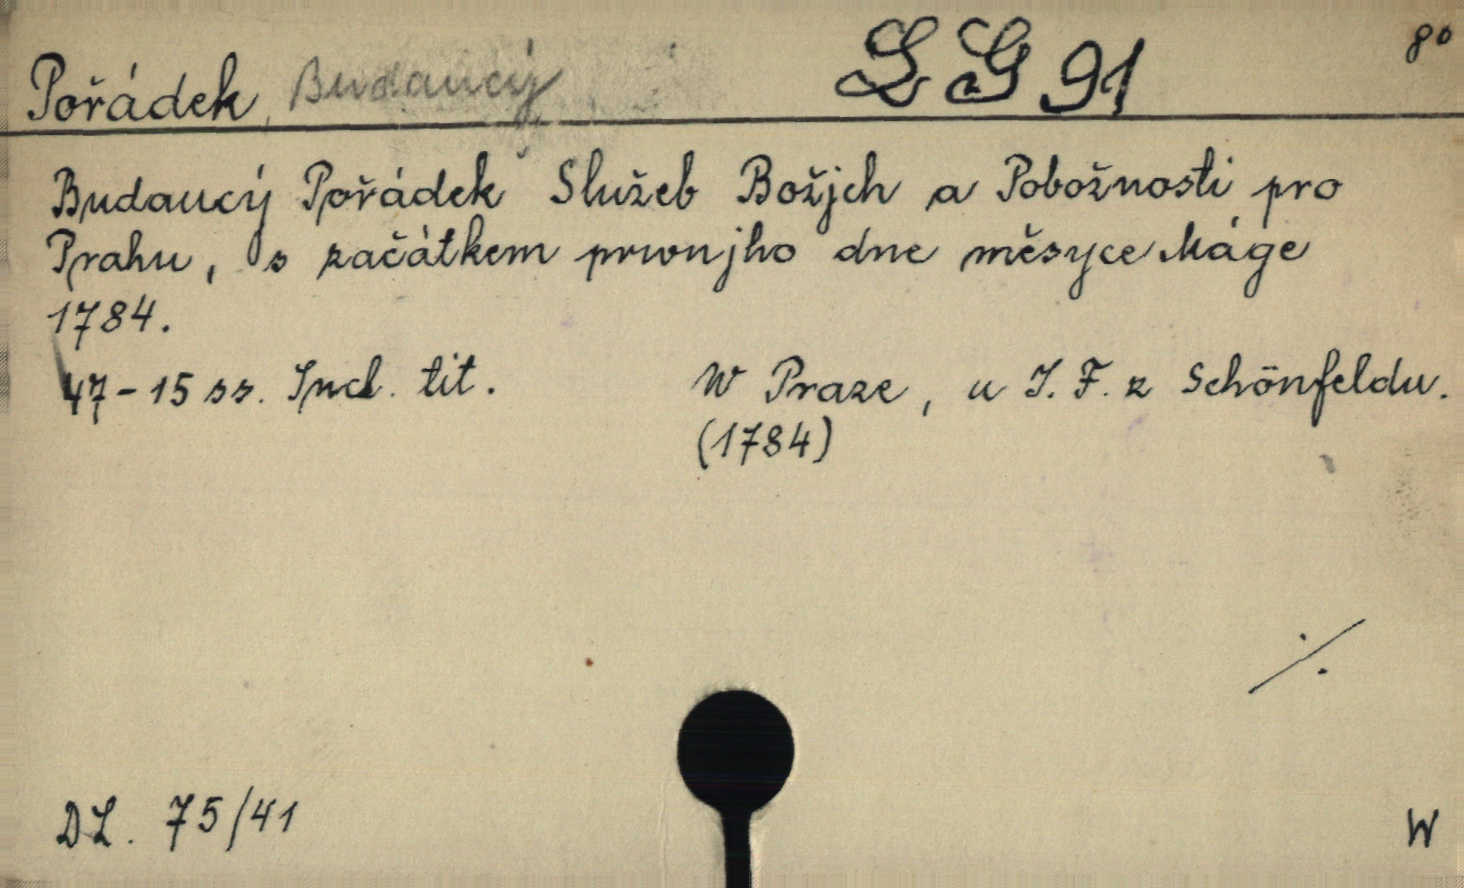 Pořádek, Budaucý LG 91 8°
Budaucý Pořádek Služeb Božjch a Pobožnosti pro
Prahu, s začátkem prwnjho dne měsyce Máge
1784.
47-15 ss. Incl. tit. W Praze, u J. F. z Schönfeldu.
(1784)
./.
DL. 75/41 W